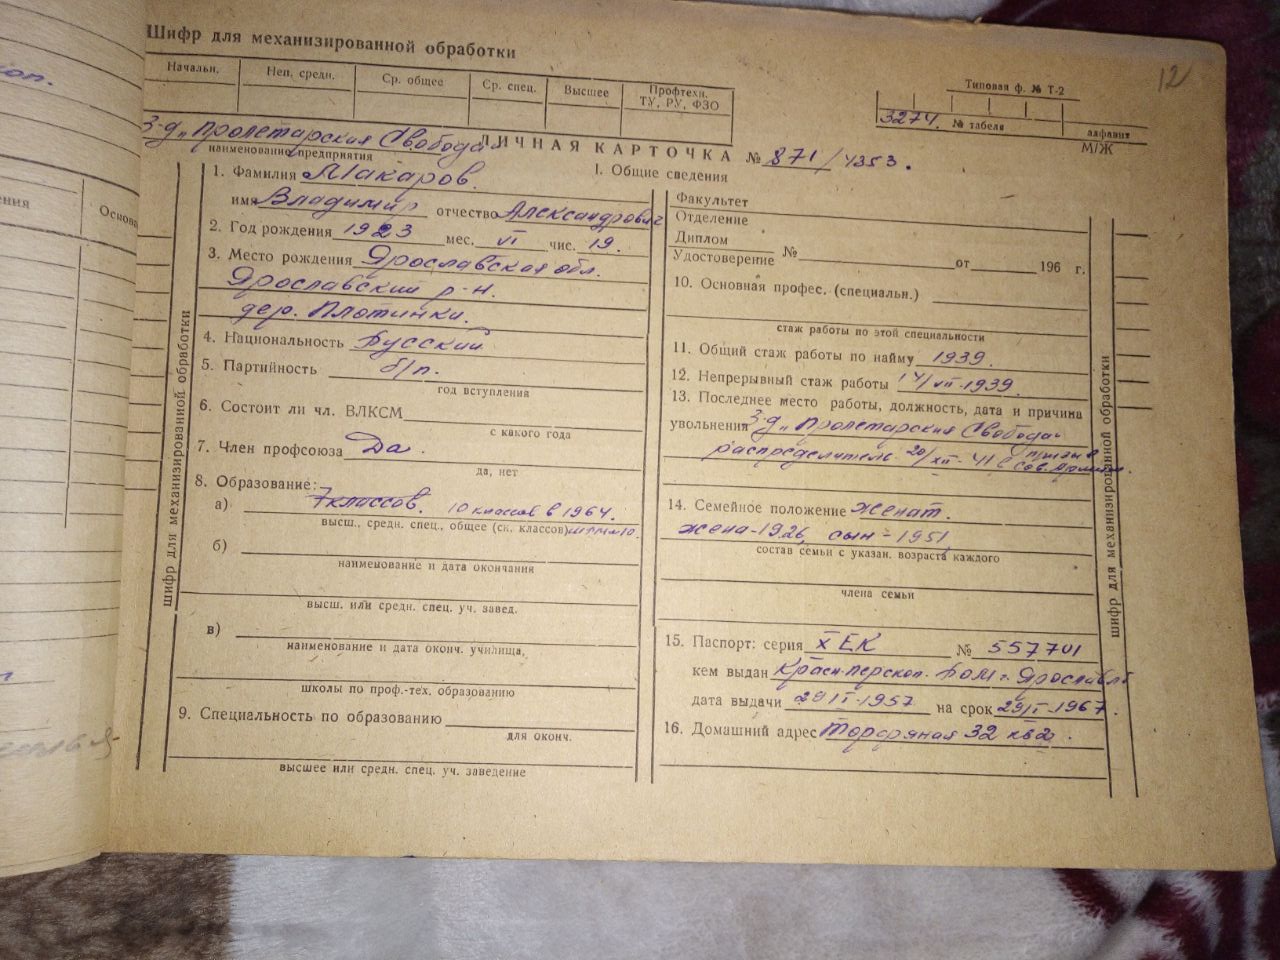 12
Шифр для механизированной обработки
Начальн. Неп. средн. Ср. общее Ср. спец. Высшее Профтехн. ТУ, РУ, ФЗО
Типовая ф. № Т-2
3274. № табеля алфавит
М/Ж
З-д „Пролетарская Свобода"
наименование предприятия
ЛИЧНАЯ КАРТОЧКА № 871/4353.
I. Общие сведения
1. Фамилия Макаров.
имя Владимир отчество Александрович
2. Год рождения 1923 мес. VI чис. 19.
3. Место рождения Ярославская обл.
Ярославский р-н.
дер. Плотинки.
4. Национальность Русский
5. Партийность б/п.
год вступления
6. Состоит ли чл. ВЛКСМ
с какого года
7. Член профсоюза Да.
да, нет
8. Образование:
а) 7 классов. 10 классов в 1964.
высш., средн. спец., общее (ск. классов)
б)
наименование и дата окончания
высш. или средн. спец. уч. завед.
в)
наименование и дата оконч. училища,
школы по проф.-тех. образованию
9. Специальность по образованию
для оконч.
высшее или средн. спец. уч. заведение
Факультет
Отделение
Диплом
Удостоверение № от 196 г.
10. Основная профес. (специальн.)
стаж работы по этой специальности
11. Общий стаж работы по найму 1939.
12. Непрерывный стаж работы 14/VII-1939.
13. Последнее место работы, должность, дата и причина
увольнения З-д „Пролетарская Свобода"
распределитель 20/XII-41 в Сов. Армию.
14. Семейное положение женат.
жена-1926, сын-1951
состав семьи с указан. возраста каждого
члена семьи
15. Паспорт: серия X ЕК № 557701
кем выдан Красн-перекоп. РОМ г. Ярославля
дата выдачи 29 II-1957 на срок 29/II-1967.
16. Домашний адрес Торфяная 32 кв 2.
шифр для механизированной обработки
шифр для механизированной обработки